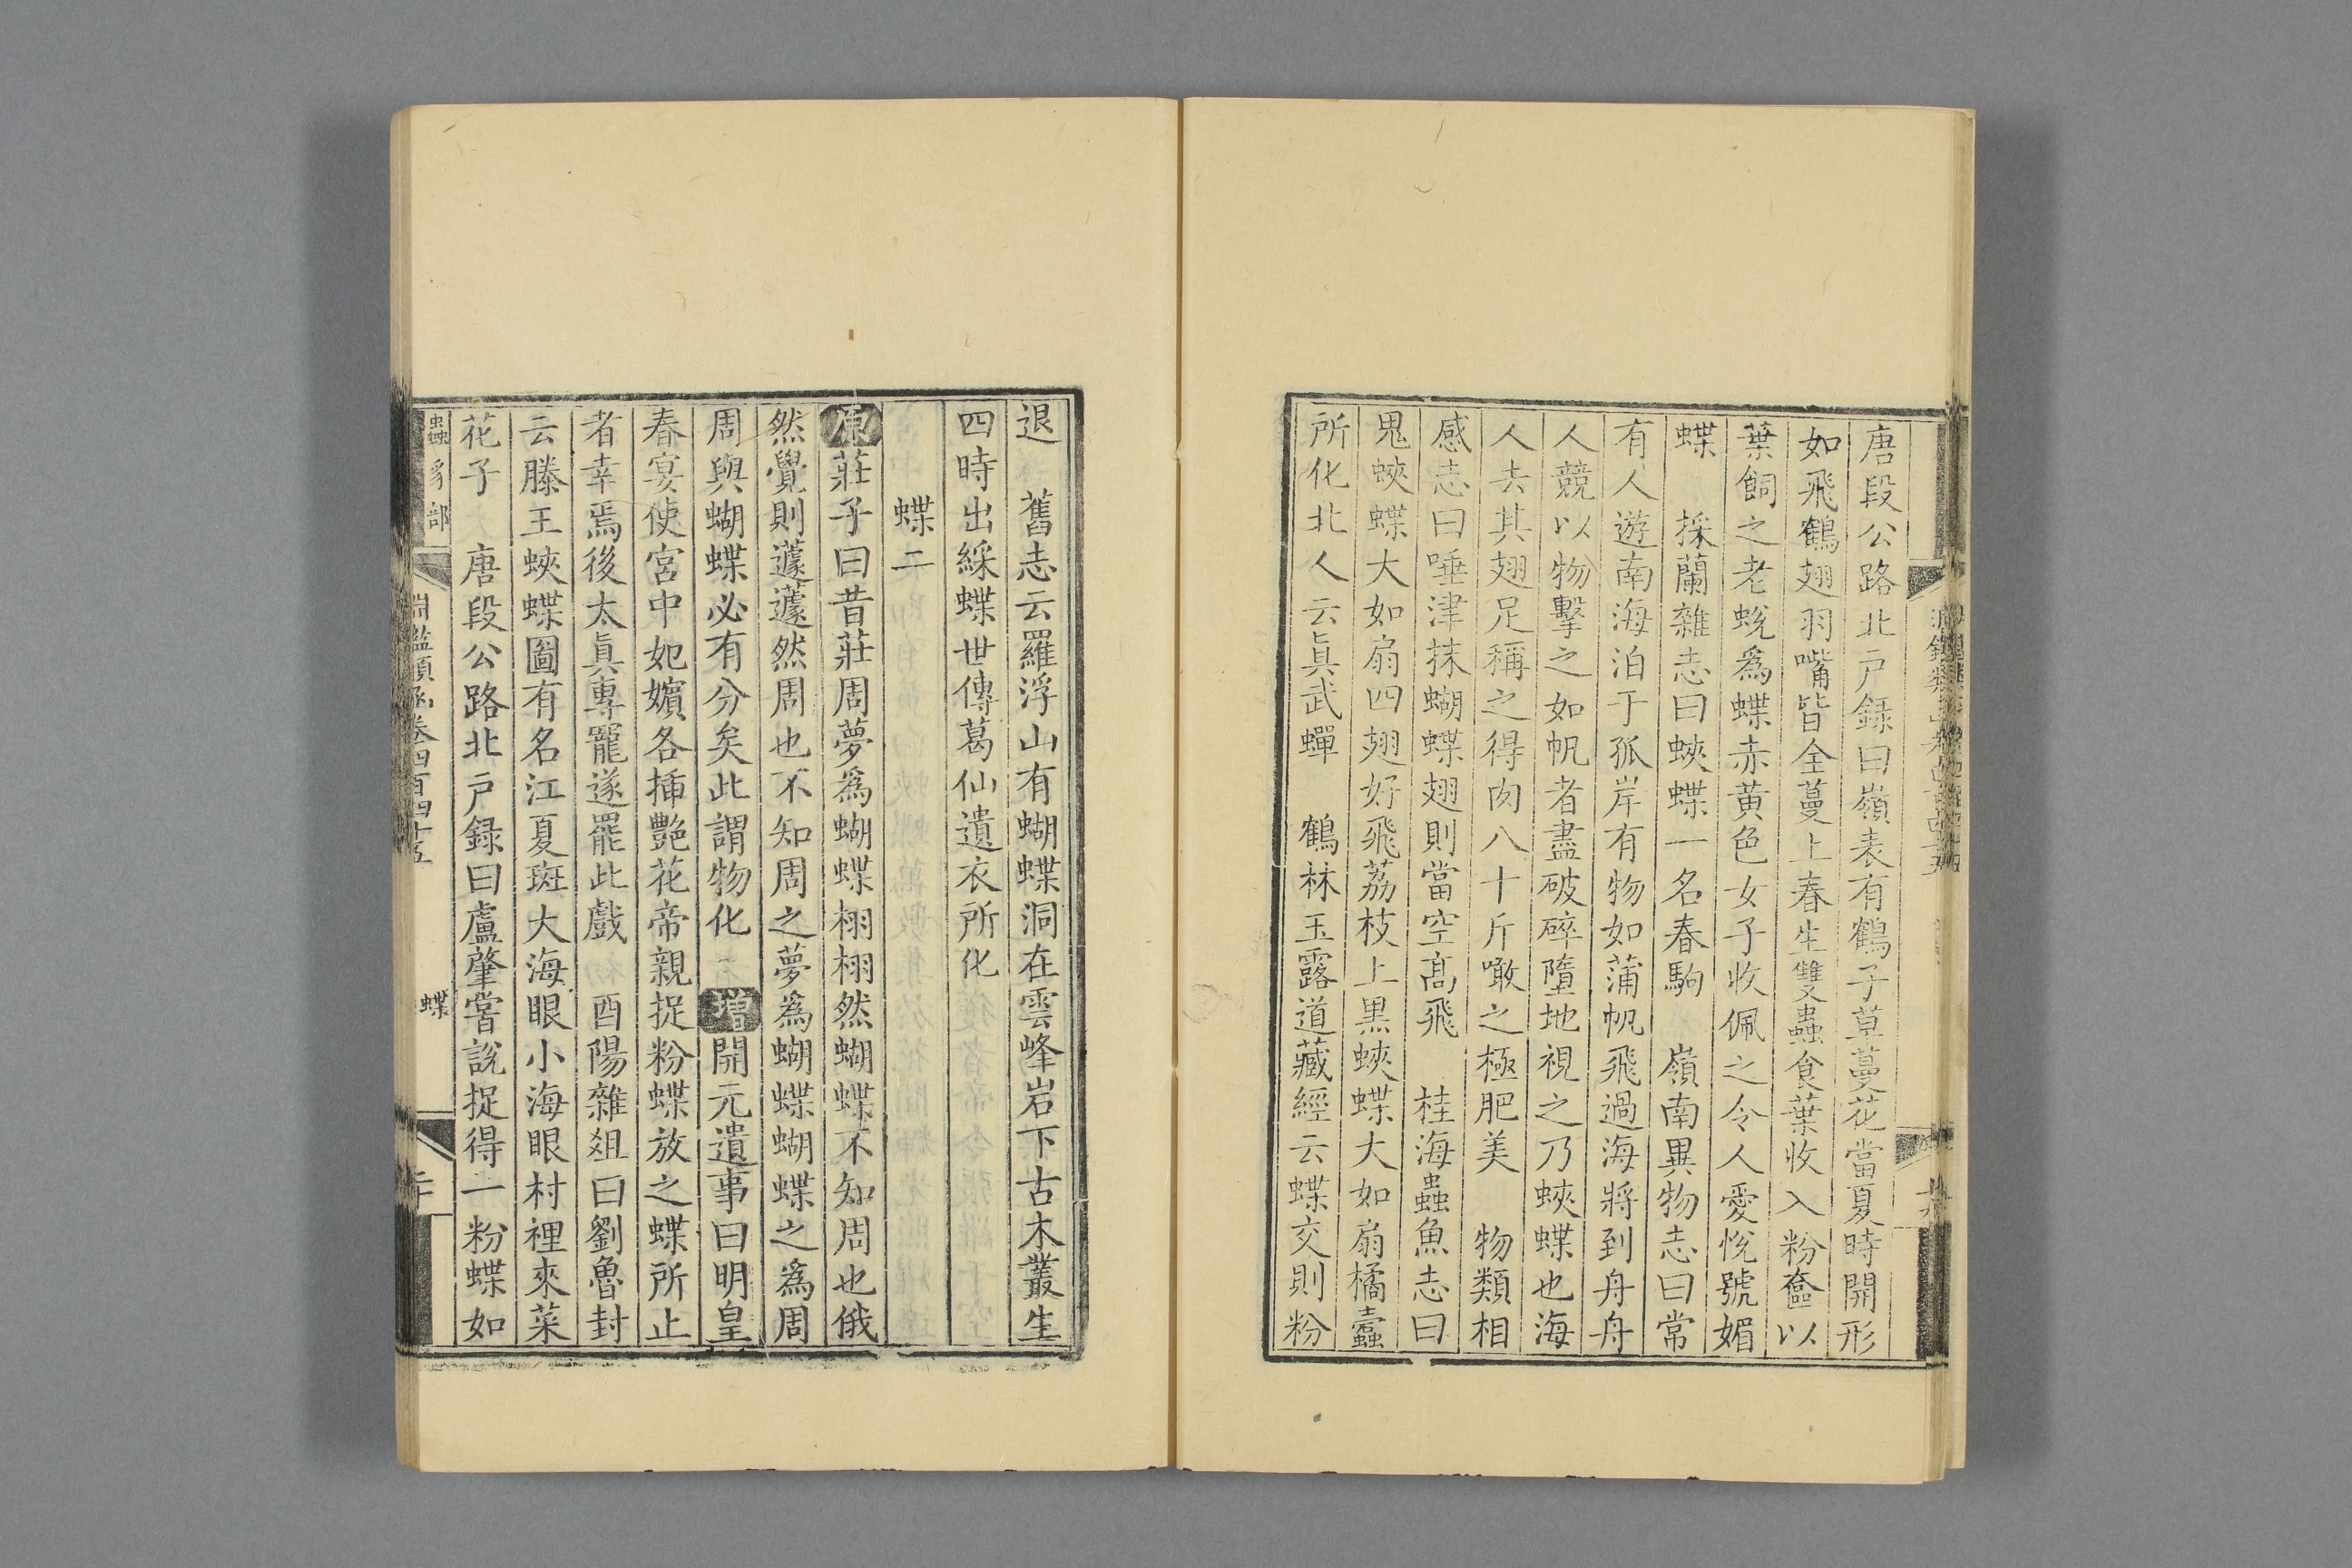 唐段公路北戸録曰嶺表有鶴子草蔓花當夏時開形
如飛鶴翅羽嘴皆全蔓上春生雙蟲食葉收入粉奩以
葉飼之老蛻爲蝶赤黃色女子收佩之令人愛悅號媚
蝶　採蘭雜志曰蛺蝶一名春駒　嶺南異物志曰常
有人遊南海泊于孤岸有物如蒲帆飛過海將到舟舟
人競以物擊之如帆者盡破碎墮地視之乃蛺蝶也海
人去其翅足稱之得肉八十斤噉之極肥美　物類相
感志曰唾津抹蝴蝶翅則當空髙飛　桂海蟲魚志曰
鬼蛺蝶大如扇四翅好飛荔枝上黒蛺蝶大如扇橘蠹
所化北人云眞武蟬　鶴林玉露道藏經云蝶交則粉
退　舊志云羅浮山有蝴蝶洞在雲峰岩下古木叢生
四時出綵蝶世傳葛仙遺衣所化
蝶二
原莊子曰昔莊周夢爲蝴蝶栩栩然蝴蝶不知周也俄
然覺則蘧蘧然周也不知周之夢爲蝴蝶蝴蝶之爲周
周與蝴蝶必有分矣此謂物化　增開元遺事曰明皇
春宴使宮中妃嬪各挿艷花帝親捉粉蝶放之蝶所止
者幸焉後太眞專寵遂罷此戲　酉陽雜俎曰劉魯封
云滕王蛺蝶圖有名江夏斑大海眼小海眼村裡來菜
花子　唐段公路北戸録曰盧肇嘗說捉得一粉蝶如
蟲豸部　淵鑑類函卷四百四十五　蝶